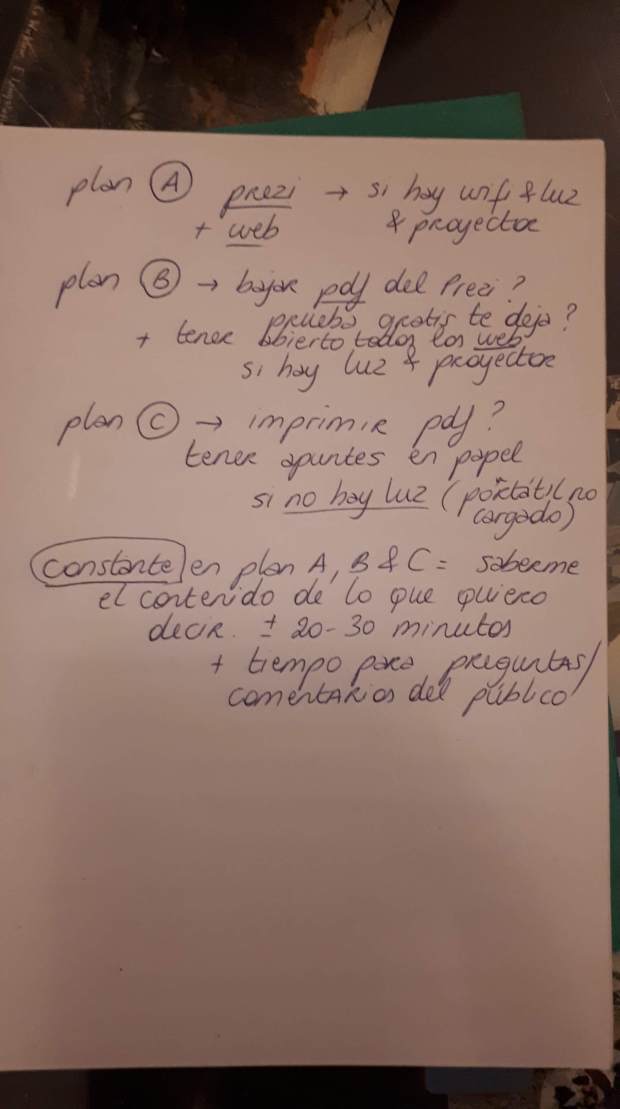 plan A prezi → si hay wifi & luz
+ web & proyector
plan B → bajar pdf del Prezi?
prueba gratis te deja?
+ tener abierto todos los web
si hay luz & proyector
plan C → imprimir pdf?
tener apuntes en papel
si no hay luz (portátil no
cargado)
constante en plan A, B & C = saberme
el contenido de lo que quiero
decir. ± 20-30 minutos
+ tiempo para preguntas/
comentarios del público